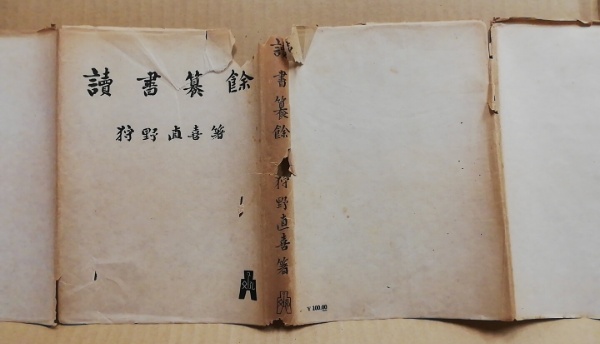 讀書篹餘
狩野直喜著
讀書篹餘
狩野直喜著
¥ 100.00